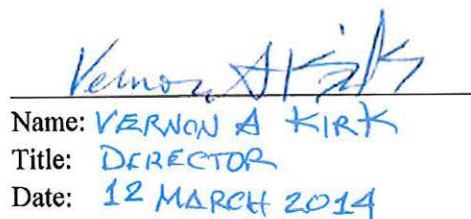 Vernon A Kirk
Name: VERNON A KIRK
Title: DIRECTOR
Date: 12 MARCH 2014